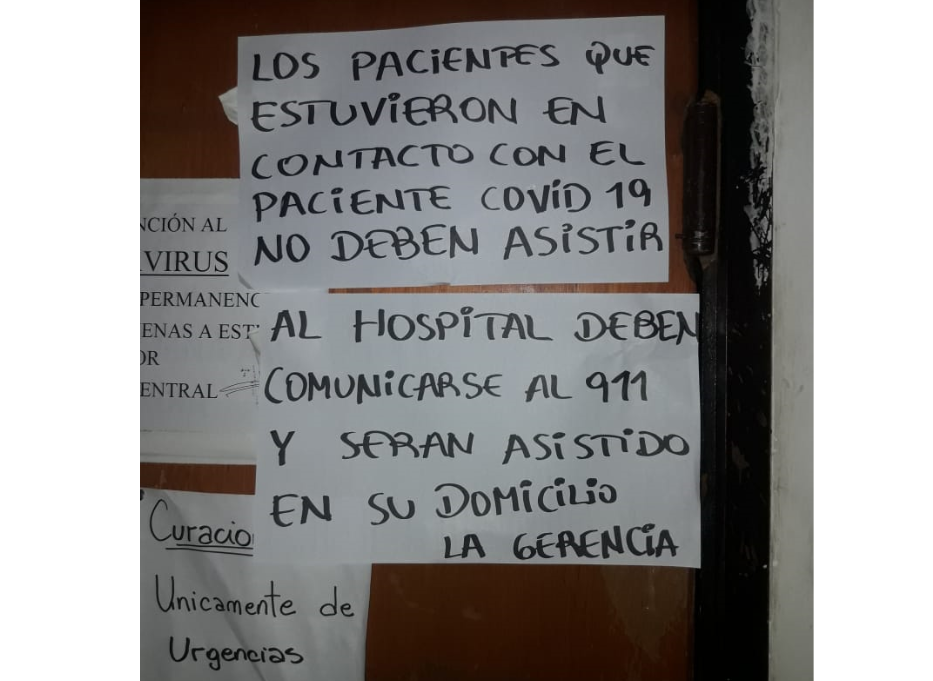 LOS PACIENTES QUE
ESTUVIERON EN
CONTACTO CON EL
PACIENTE COVID 19
NO DEBEN ASISTIR
AL HOSPITAL DEBEN
COMUNICARSE AL 911
Y SERAN ASISTIDO
EN SU DOMICILIO
LA GERENCIA
NCIÓN AL
VIRUS
PERMANENC
ENAS A EST
OR
ENTRAL
Curacio
Unicamente de
Urgencias